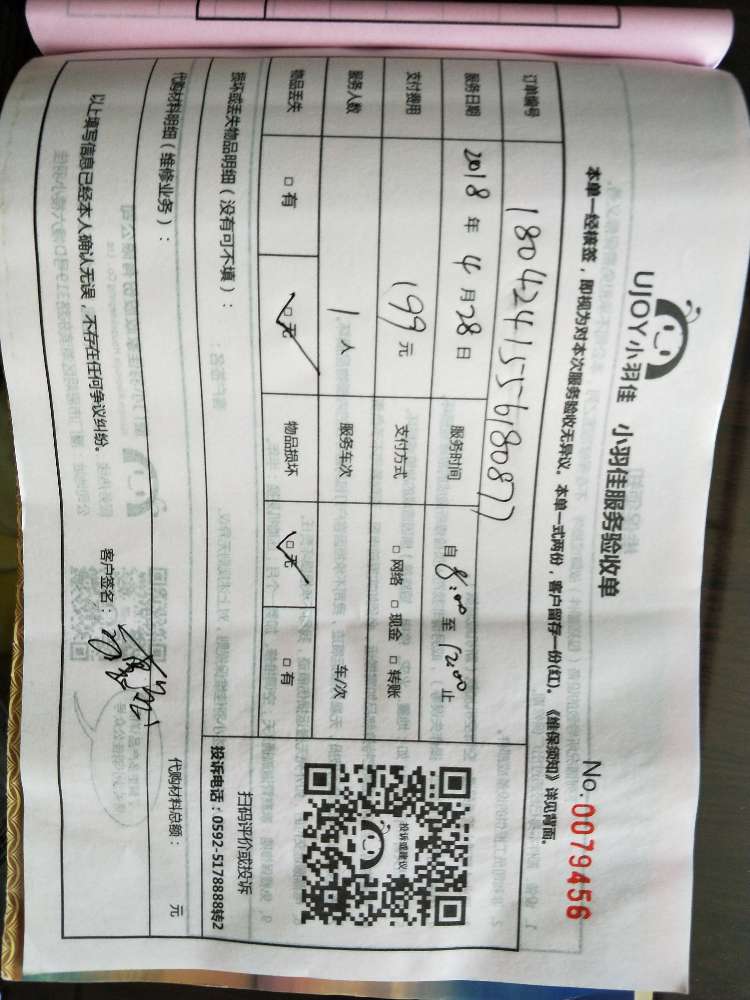 UJOY小羽佳 小羽佳服务验收单 No.0079456
本单一经核签，即视为对本次服务验收无异议。本单一式两份，客户留存一份(红)。《维保须知》详见背面。
订单编号 180424155618087
服务日期 2018年4月28日 服务时间 自8:00至12:00止
支付费用 199元 支付方式 □网络 □现金 □转账
服务人数 1人 服务车次 车/次
物品丢失 □有 □无 物品损坏 □无 □有
投诉或建议
扫码评价或投诉
投诉电话：0592-5178888转2
损坏或丢失物品明细（没有可不填）：
代购材料明细（维修业务）： 代购材料总额： 元
以上填写信息已经本人确认无误，不存在任何争议纠纷。 客户签名：